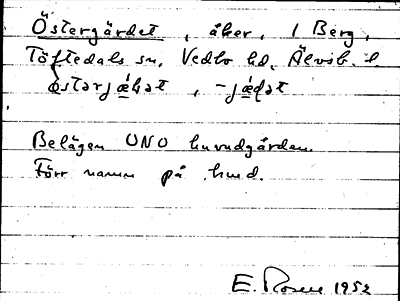 Östergärdet, åker, 1 Berg,
Töftedals sn, Vedbo hd, Älvsb. l
östərjæ̀ḷət, -jæ̀ḍət
Belägen ONO huvudgården.
Förr namn på hmd.
E. Rosell 1952